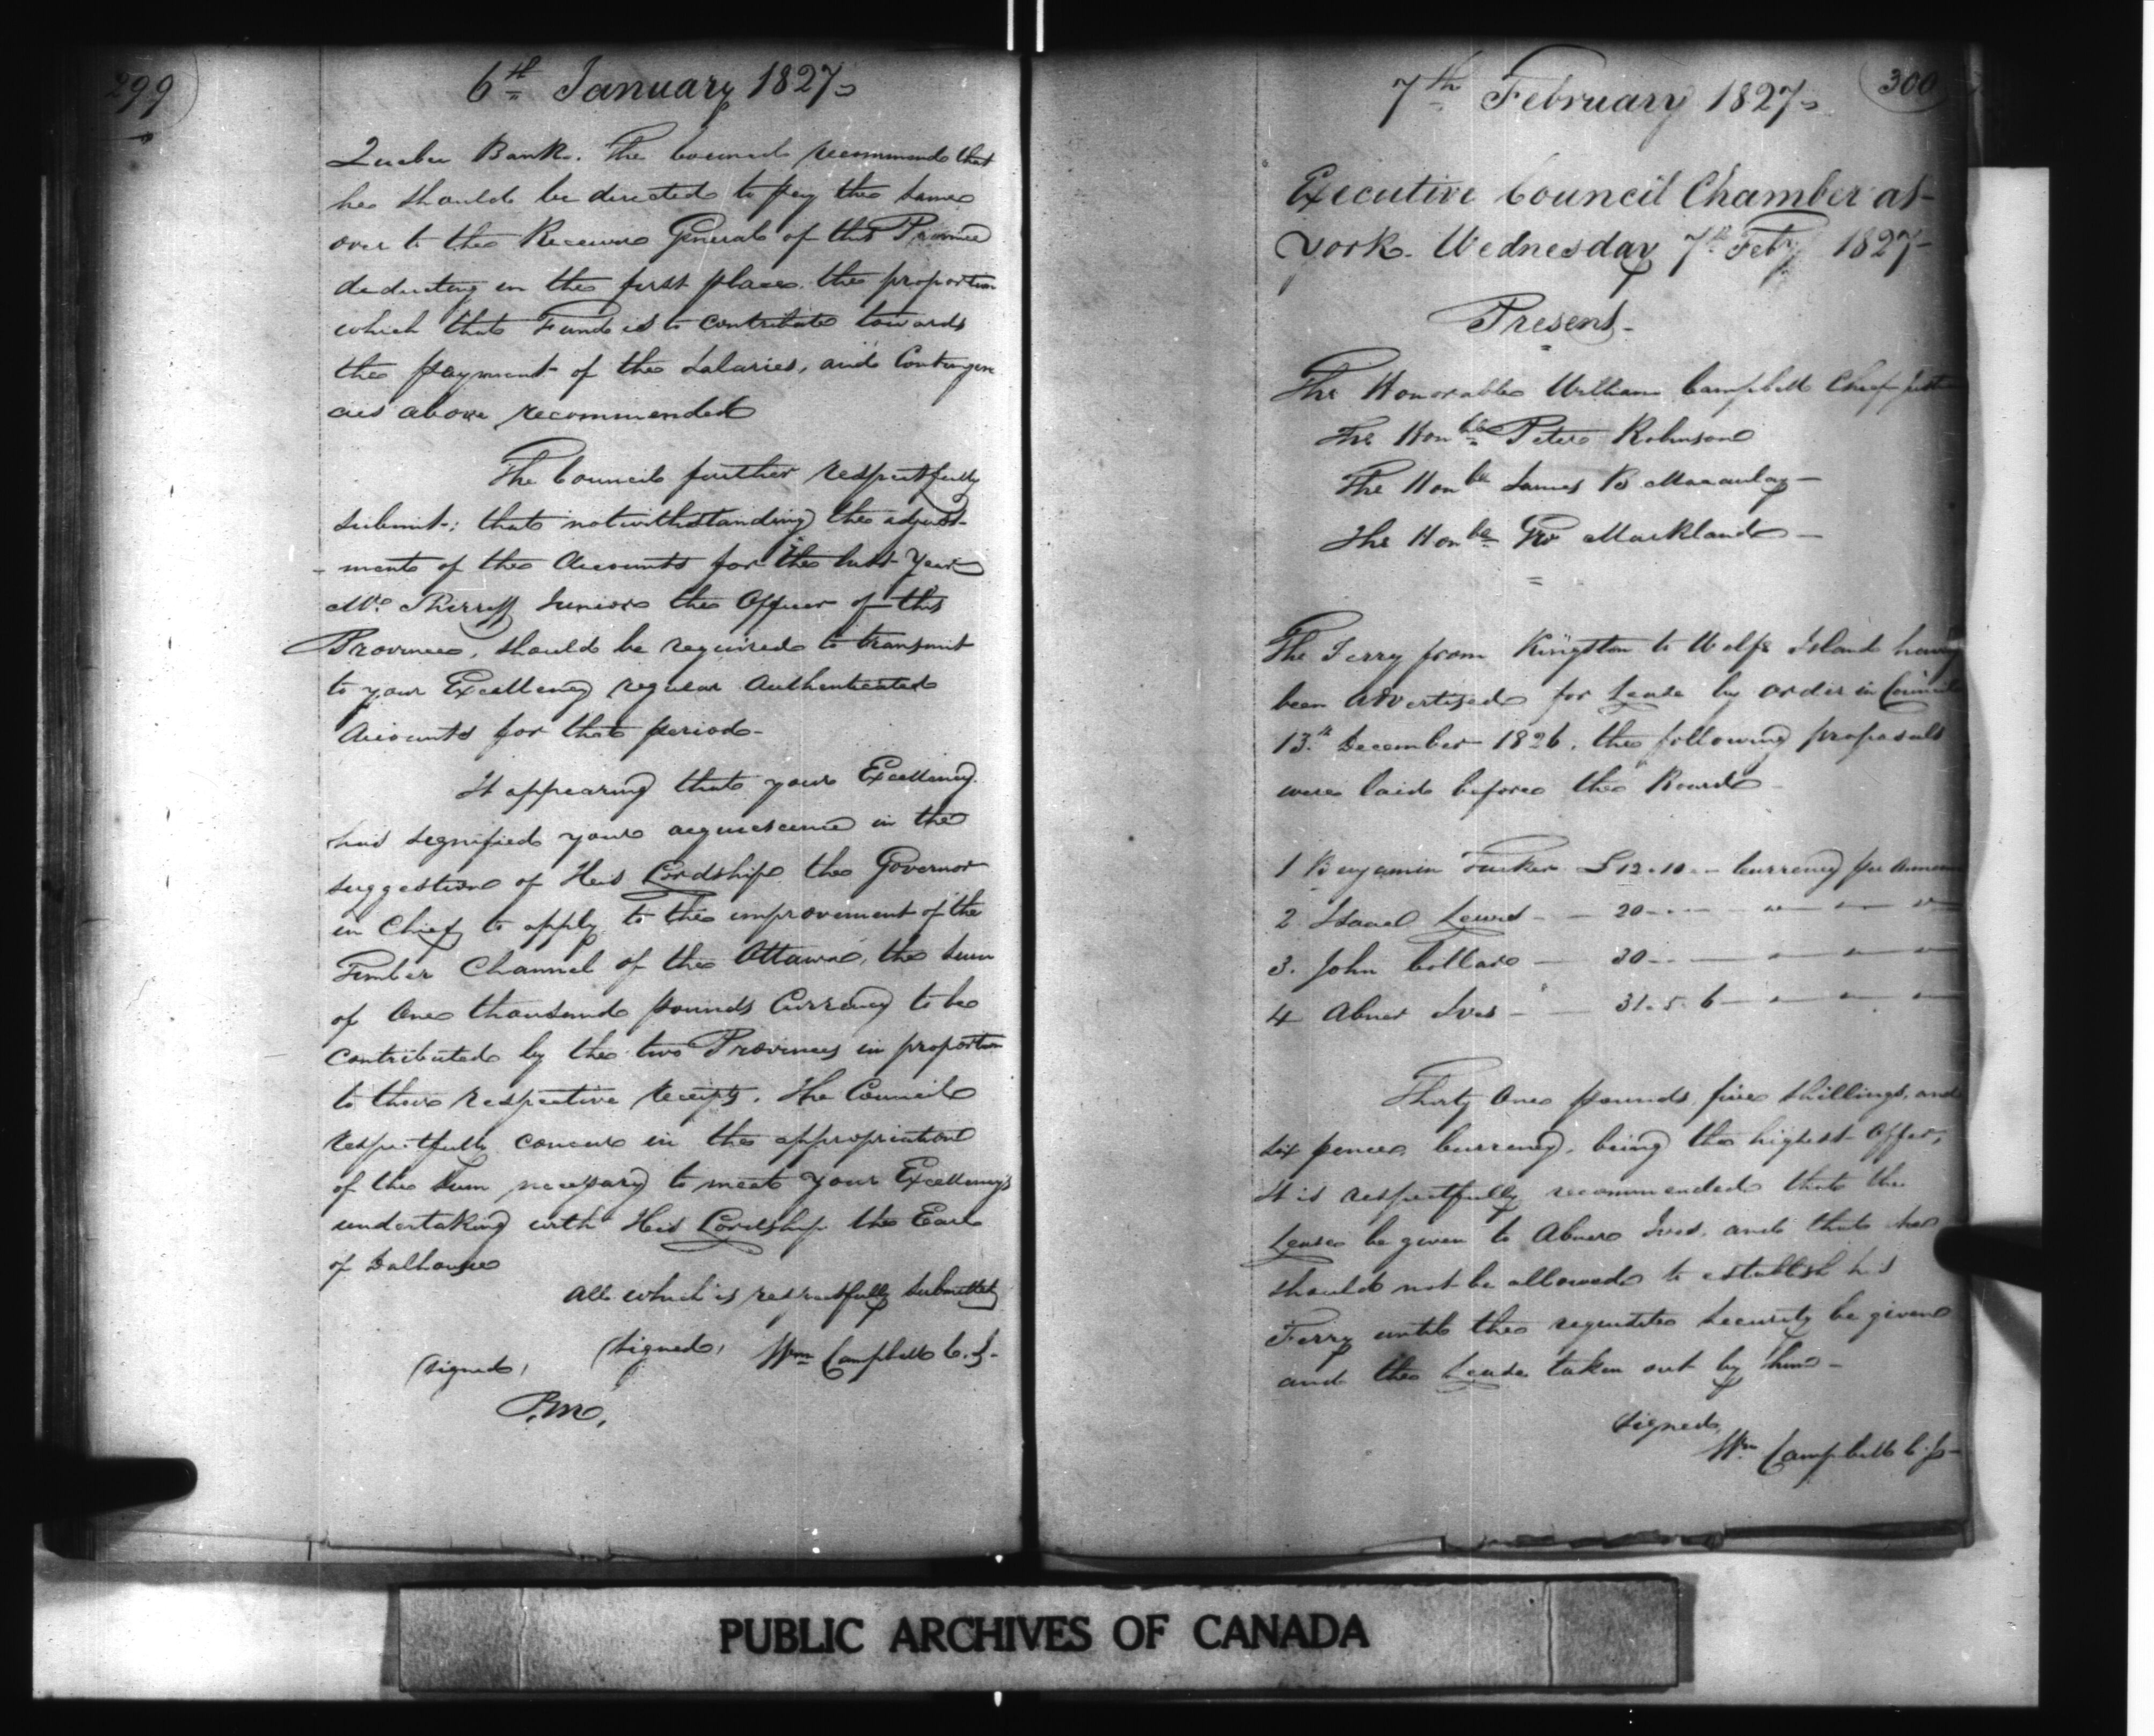 299
6th January 1827
Quebec Bank. The Council recommend that
he should be directed to pay the same
over to the Receiver General of this Province
deducting in the first place the proportion
which that Fund is to contribute towards
the payment of the Salaries, and Contingen
cies above recommended
The Council further respectfully
submit: that notwithstanding the adjust-
-ment of the Accounts for the last Year
Mr. Sherriff Junior the Officer of this
Province, should be required to transmit
to your Excellency regular Authenticated
Accounts for that period-
It appearing that your Excellency
has signified your acquiescence in the
suggestion of His Lordship the Governor
in Chief to apply to the improvement of the
Timber Channel of the Ottawa, the Sum
of One thousand pounds Currency to be
contributed by the two Provinces in proportion
to their respective receipts. The Council
respectfully concur in the appropriation
of the Sum necessary to meet your Excellency's
undertaking with His Lordship the Earl
of Dalhousie
All which is respectfully submitted
(signed, Wm Campbell C.J.
(signed,
P.M.
300
7th February 1827
Executive Council Chamber at
York. Wednesday 7th Feby 1827-
Present-
The Honorable William Campbell Chief Justice
The Honble Peter Robinson
The Honble James B Macaulay-
The Honble Geo Markland-
The Ferry from Kingston to Wolfe Island having
been advertised for Lease by order in Council
13th December 1826, the following proposals
were laid before the Board
1 Benjamin Tucker £12.10.- Currency per Annum
2 Israel Lewis - 20
3. John Collar - 30
4 Abner Ives - 31.5.6
Thirty One pounds, five shillings, and
six pence Currency, being the highest offer,
It is respectfully recommended that the
Lease be given to Abner Ives, and that he
should not be allowed to establish his
Ferry until the requisite security be given
and the Lease taken out by him-
Signed,
Wm Campbell C.J-
PUBLIC ARCHIVES OF CANADA